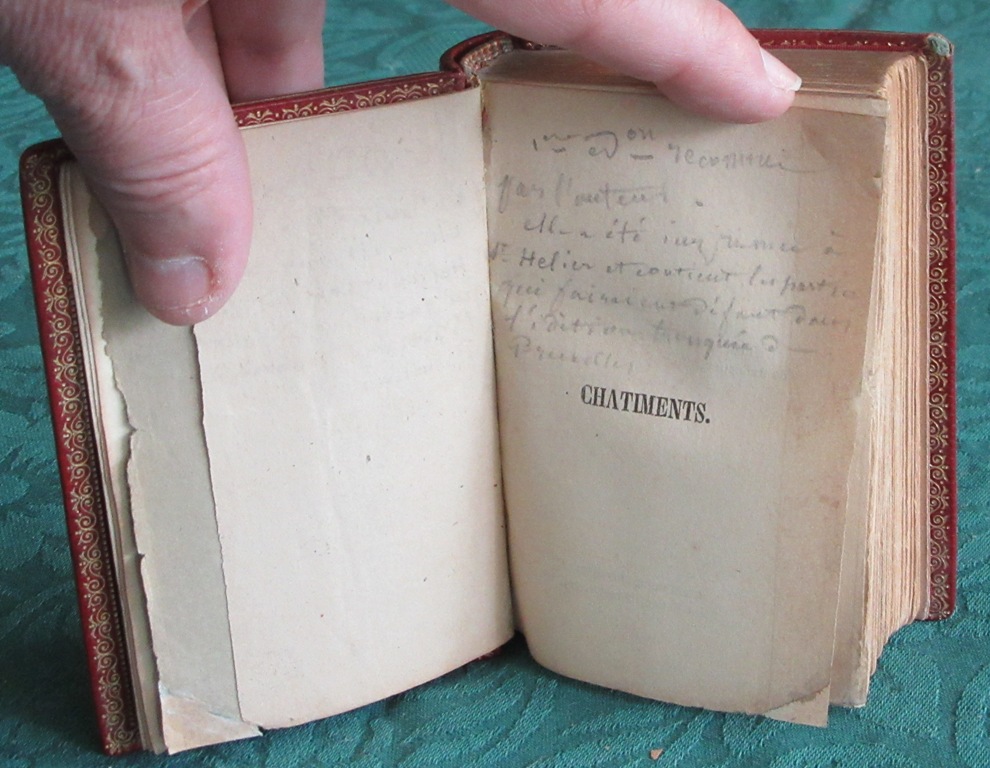 1ère edon reconnue
par l'auteur.
Elle a été imprimée à
St Helier et contient les parties
qui faisaient défaut dans
l'édition tronquée de
Bruxelles,
CHATIMENTS.